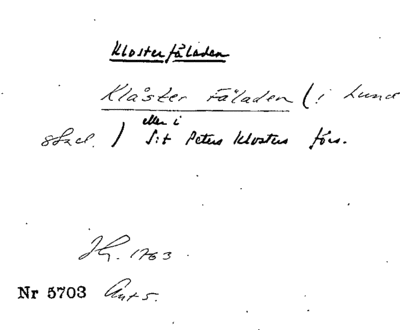 Klosterfäladen
Klåster Fäladen (i Lund
eller i
skzl.) S:t Peters Klosters förs.
Hg. 1763.
Nr 5703 Ant 5.